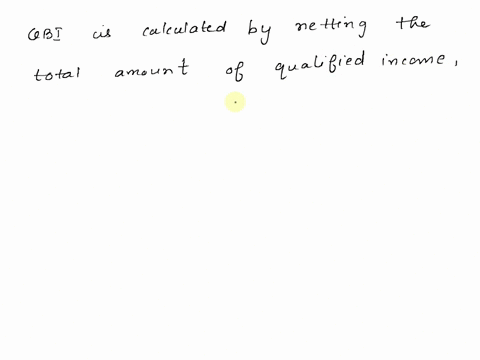 QBI is calculated by netting the
total amount of qualified income,